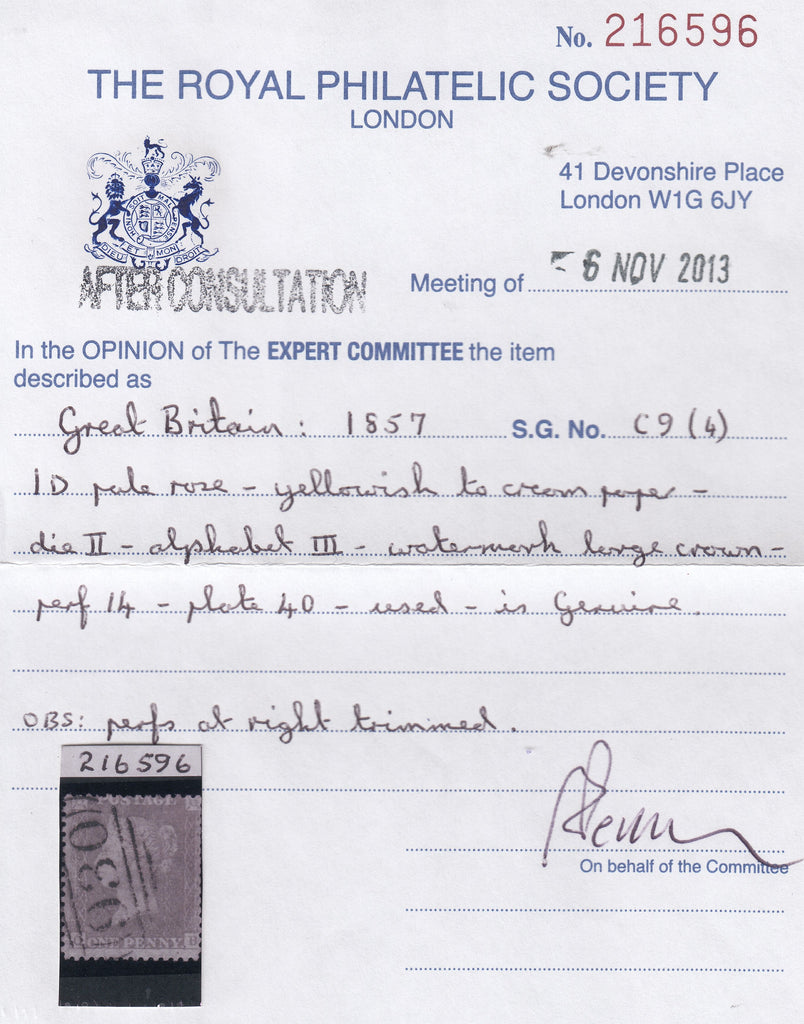 No. 216596
THE ROYAL PHILATELIC SOCIETY
LONDON
41 Devonshire Place
London W1G 6JY
DIEU ET MON DROIT
AFTER CONSULTATION
Meeting of - 6 NOV 2013
In the OPINION of The EXPERT COMMITTEE the item
described as
Great Britain: 1857 S.G. No. C9 (4)
1D pale rose - yellowish to cream paper -
die II - alphabet III - watermark large crown -
perf 14 - plate 40 - used - is Genuine.
OBS: perfs at right trimmed.
216596
POSTAGE
930
ONE PENNY
On behalf of the Committee